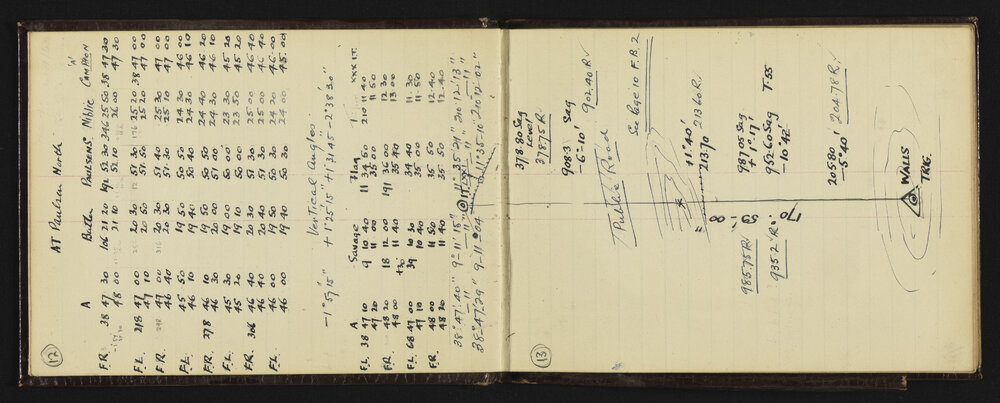 12
AT Paulsen North
A Butler Paulsens Niblic Campion "A"
F.R. 38 47 30 106 21 20 192 52 30 346 25 50 38 47 30
48 00 21 10 52 10 26 00 47 30
F.L. 218 47 00 20 30 51 30 25 20 38 47 00
47 10 20 50 51 50 25 20 47 00
F.R. 47 00 20 30 51 40 25 30 47 00
46 40 20 30 51 30 25 10 47 00
F.L. 45 50 19 50 50 50 24 30 46 00
46 10 19 40 50 40 24 30 46 10
F.R. 278 46 10 19 50 50 50 24 40 46 20
46 30 20 00 51 00 24 40 46 10
F.L. 45 30 19 00 50 00 23 30 45 20
45 20 19 10 50 00 23 50 45 20
F.R. 306 46 40 20 30 51 00 25 00 46 40
46 40 20 40 51 00 25 00 46 40
F.L. 46 00 19 50 50 50 24 20 46 00
46 00 19 40 50 30 24 00 45 00
Vertical Angles
-1° 59' 15" +1° 25' 15" +1° 31' 45 -2° 38' 30"
A Savage Flag 1 XXX I.T.
F.L. 38 47 10 9 10 40 11 34 50 20 11 40
47 20 11 00 35 00 11 50
F.R. 48 20 18 12 00 191 36 00 12 30
48 00 11 40 35 40 13 00
F.L. 68 47 00 39 10 30 34 40 11 30
47 10 10 40 35 00 11 50
F.R. 48 00 11 50 35 50 12 40
48 20 11 40 35 50 12 40
38° 47' 40" 9° 11' 15" 11° 35' 21" 20° 12' 13"
38° 47' 29" 9° 11' 04 11° 35' 10 20° 12' 02"
13
378.80 Sag
Level
378.75 R.
908.3 Sag
-6° 10'
902.40 R.
Public Road
See Page 10 F.B. 2
+1° 40'
213.70
213.60 R.
170° 59' 00
985.75 R.
935.2 R.
987.05 Sag
+1° 17'
952.60 Sag
-10° 42'
T.55
205.80
-5° 40'
204.78 R.
WALLS
TRG.